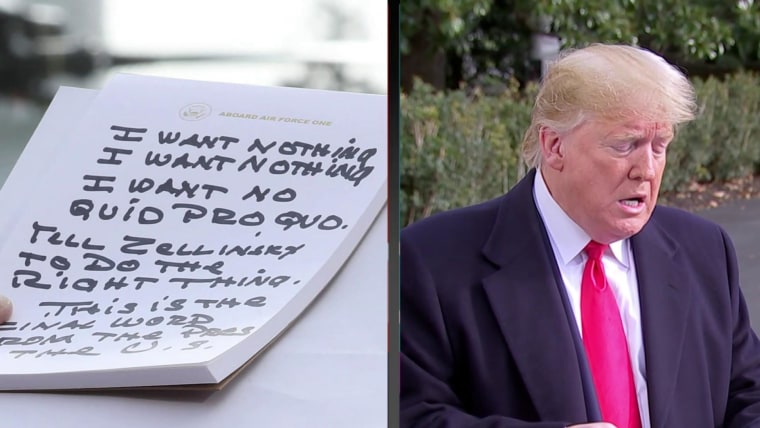 ABOARD AIR FORCE ONE
I WANT NOTHING
I WANT NOTHING
I WANT NO
QUID PRO QUO.
TELL ZELLINSKY
TO DO THE
RIGHT THING.
THIS IS THE
FINAL WORD
FROM THE PRES
THE U.S.